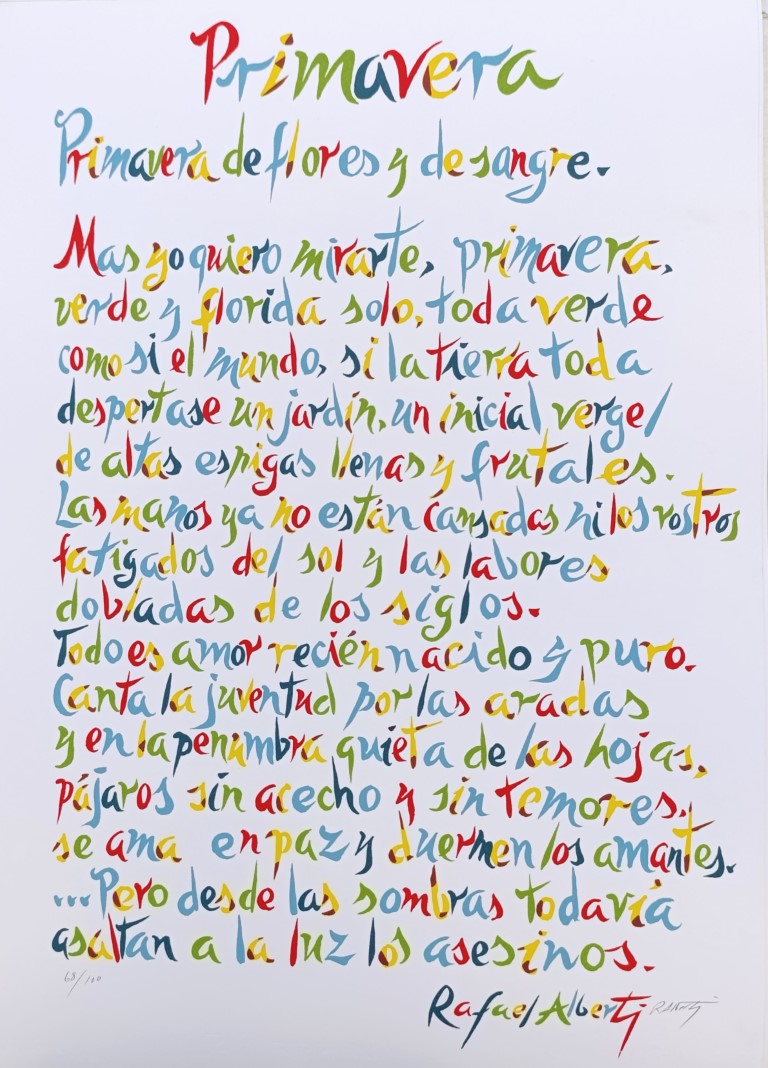 Primavera
Primavera de flores y de sangre.
Mas yo quiero mirarte, primavera,
verde y florida solo, toda verde
como si el mundo, si la tierra toda
despertase un jardín, un inicial vergel
de altas espigas llenas y frutales.
Las manos ya no están cansadas ni los rostros
fatigados del sol y las labores
dobladas de los siglos.
Todo es amor recién nacido y puro.
Canta la juventud por las aradas
y en la penumbra quieta de las hojas,
pájaros sin acecho y sin temores,
se ama en paz y duermen los amantes.
...Pero desde las sombras todavía
asaltan a la luz los asesinos.
68/100
Rafael Alberti RAlberti